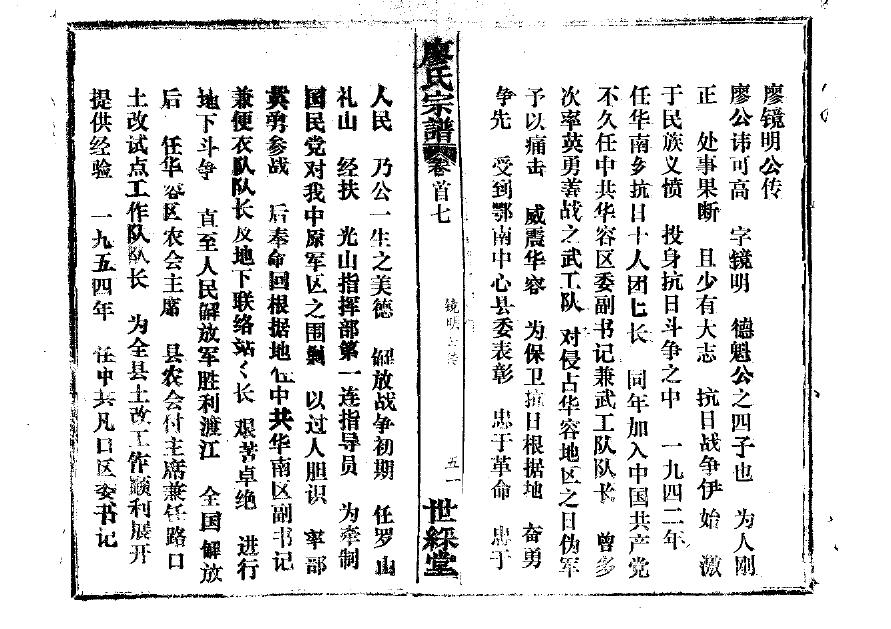 廖镜明公传
廖公讳可高　字镜明　德魁公之四子也　为人刚
正　处事果断　且少有大志　抗日战争伊始　激
于民族义愤　投身抗日斗争之中　一九四二年
任华南乡抗日十人团匕长　同年加入中国共产党
不久任中共华容区委副书记兼武工队队长　曾多
次率英勇善战之武工队　对侵占华容地区之日伪军
予以痛击　威震华容　为保卫抗日根据地　奋勇
争先　受到鄂南中心县委表彰　忠于革命　忠于
廖氏宗譜　卷首七
镜明公传
五一
世綵堂
人民　乃公一生之美德　解放战争初期　任罗山
礼山　经扶　光山指挥部第一连指导员　为牵制
国民党对我中原军区之围剿　以过人胆识　率部
英勇参战　后奉命回根据地任中共华南区副书记
兼便衣队队长及地下联络站〱长　艰苦卓绝　进行
地下斗争　直至人民解放军胜利渡江　全国解放
后　任华容区农会主席　县农会付主席兼任路口
土改试点工作队队长　为全县土改工作顺利展开
提供经验　一九五四年　任中共凡口区委书记